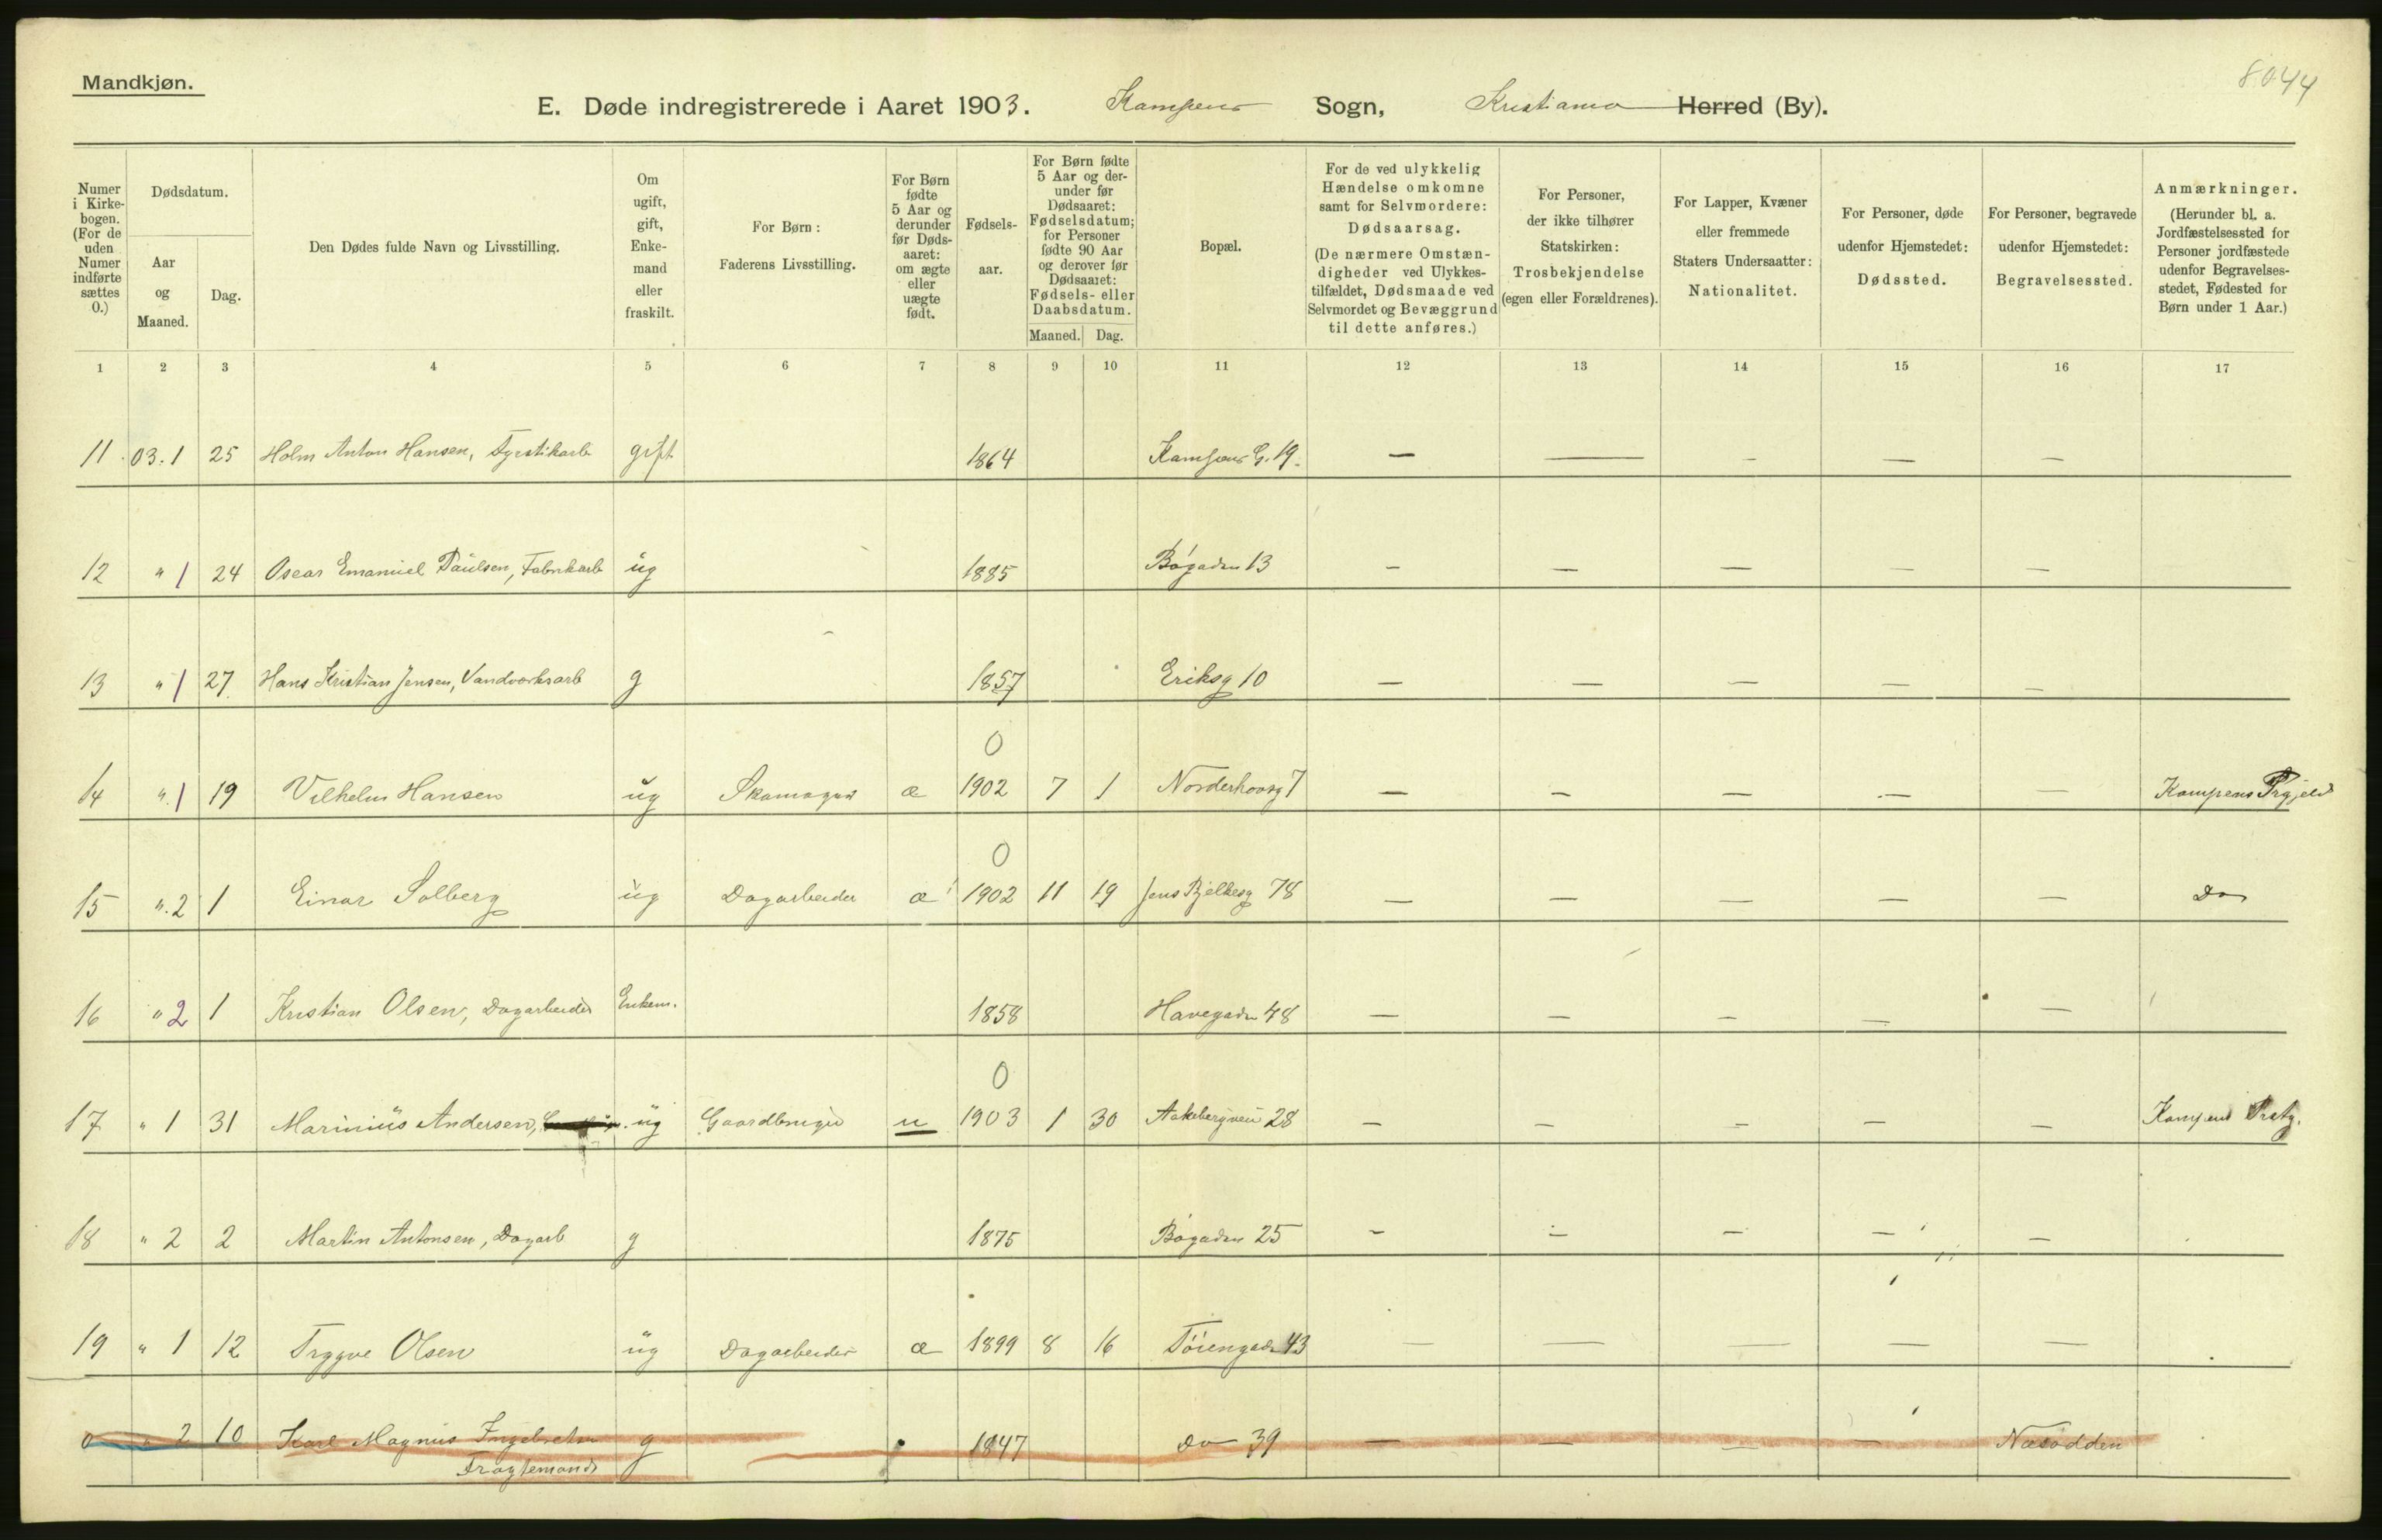 Mandkjøn.
8044
E. Døde indregistrerede i Aaret 1903. Kampens Sogn, Kristiania Herred (By).
Numer i Kirkebogen. (For de uden Numer indførte sættes 0.)
Dødsdatum.
Aar og Maaned.
Dag.
Den Dødes fulde Navn og Livsstilling.
Om ugift, gift, Enkemand eller fraskilt.
For Børn: Faderens Livsstilling.
For Børn fødte 5 Aar og derunder før Dødsaaret: om ægte eller uægte født.
Fødselsaar.
For Børn fødte 5 Aar og derunder før Dødsaaret: Fødselsdatum; for Personer fødte 90 Aar og derover før Dødsaaret: Fødsels- eller Daabsdatum.
Maaned. Dag.
Bopæl.
For de ved ulykkelig Hændelse omkomne samt for Selvmordere: Dødsaarsag. (De nærmere Omstændigheder ved Ulykkestilfældet, Dødsmaade ved Selvmordet og Bevæggrund til dette anføres.)
For Personer, der ikke tilhører Statskirken: Trosbekjendelse (egen eller Forældrenes).
For Lapper, Kvæner eller fremmede Staters Undersaatter: Nationalitet.
For Personer, døde udenfor Hjemstedet: Dødssted.
For Personer, begravede udenfor Hjemstedet: Begravelsessted.
Anmærkninger. (Herunder bl. a. Jordfæstelsessted for Personer jordfæstede udenfor Begravelsesstedet, Fødested for Børn under 1 Aar.)
1 2 3 4 5 6 7 8 9 10 11 12 13 14 15 16 17
11 03.1 25 Holm Anton Hansen, Fyrstikarb gift 1864 Kampens G. 19. — — — — —
12 " 1 24 Oscar Emanuel Paulsen, Fabrikarb ug 1885 Bøgaden 13 — — — — —
13 " 1 27 Hans Kristian Jensen, Vandværksarb g 1857 Eriksg 10 — — — — —
0
14 " 1 19 Vilhelm Hansen ug Skomager æ 1902 7 1 Norderhovsg 7 — — — — — Kampens Prgjeld
0
15 " 2 1 Einar Solberg ug Dagarbeider æ 1902 11 19 Jens Bjelkesg 78 — — — — — Do
16 " 2 1 Kristian Olsen, Dagarbeider Enkem. 1858 Havegaden 48 — — — — —
0
17 " 1 31 Marinius Andersen, ug Gaardbruger u 1903 1 30 Aakebergveien 28 — — — — — Kampens Prstg.
18 " 2 2 Martin Antonsen, Dagarb g 1875 Bøgaden 25 — — — — —
19 " 1 12 Trygve Olsen ug Dagarbeider æ 1899 8 16 Tøiengaden 43 — — — — —
0 " 2 10 Karl Magnus Ingebretsen g 1847 Do 39 — — — — Næsodden
Fragtemand